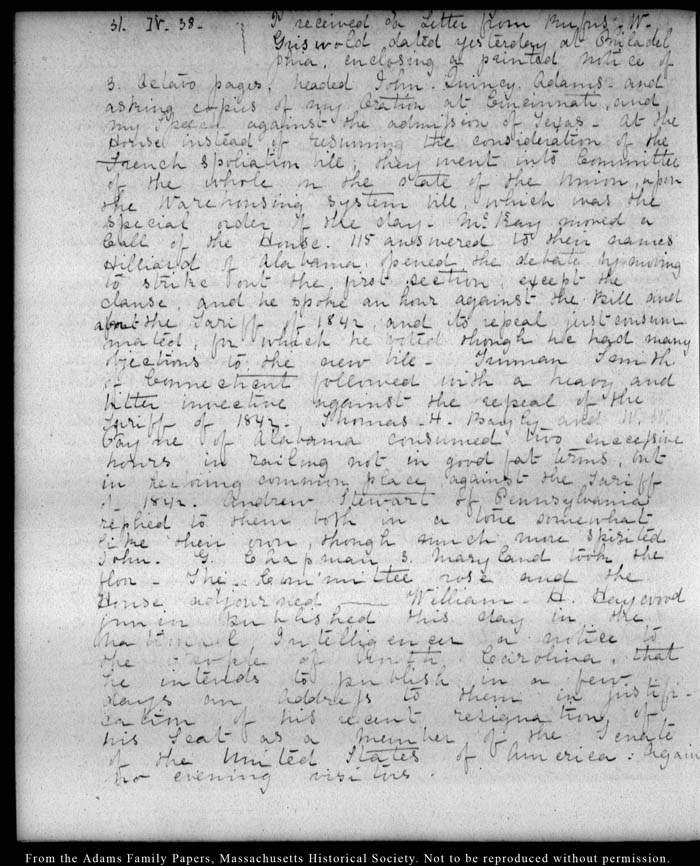 31. IV. 38. I received a Letter from Rufus W.
Griswold dated yesterday at Philadel
phia, enclosing a printed notice of
3. Octavo pages, headed John. Quincy. Adams and
asking copies of my Oration at Cincinnati, and
my Speech against the admission of Texas. At the
House instead of resuming the consideration of the
French Spoliation bill, they went into Committee
of the whole on the state of the Union, upon
the Warehousing System bill, which was the
special order of the day. McKay moved a
Call of the House. 115 answered to their names
Hilliard of Alabama, opened the debate by moving
to strike out the first section, except the
clause, and he spoke an hour against the Bill and
about the Tariff of 1842, and its repeal just consum
mated, for which he voted though he had many
objections to the new bill. Truman Smith
of Connecticut followed with a heavy and
bitter invective against the repeal of the
Tariff of 1842. Thomas. H. Bayly and W. W.
Payne of Alabama consumed two successive
hours in railing not in good set terms, but
in common place against the Tariff
of 1842. Andrew Stewart of Pennsylvania
replied to them both in a tone somewhat
like their own, though much more spirited
John. G. Chapman 3. Maryland took the
floor. The Committee rose and the
House adjourned William. H. Haywood
junior published this day in the
National Intelligencer a notice to
the people of North Carolina, that
he intends to publish in a few
days an Address to them in justifi-
cation of his recent resignation of
his Seat as a member of the Senate
of the United States of America: Again
no evening visitors.
From the Adams Family Papers, Massachusetts Historical Society. Not to be reproduced without permission.